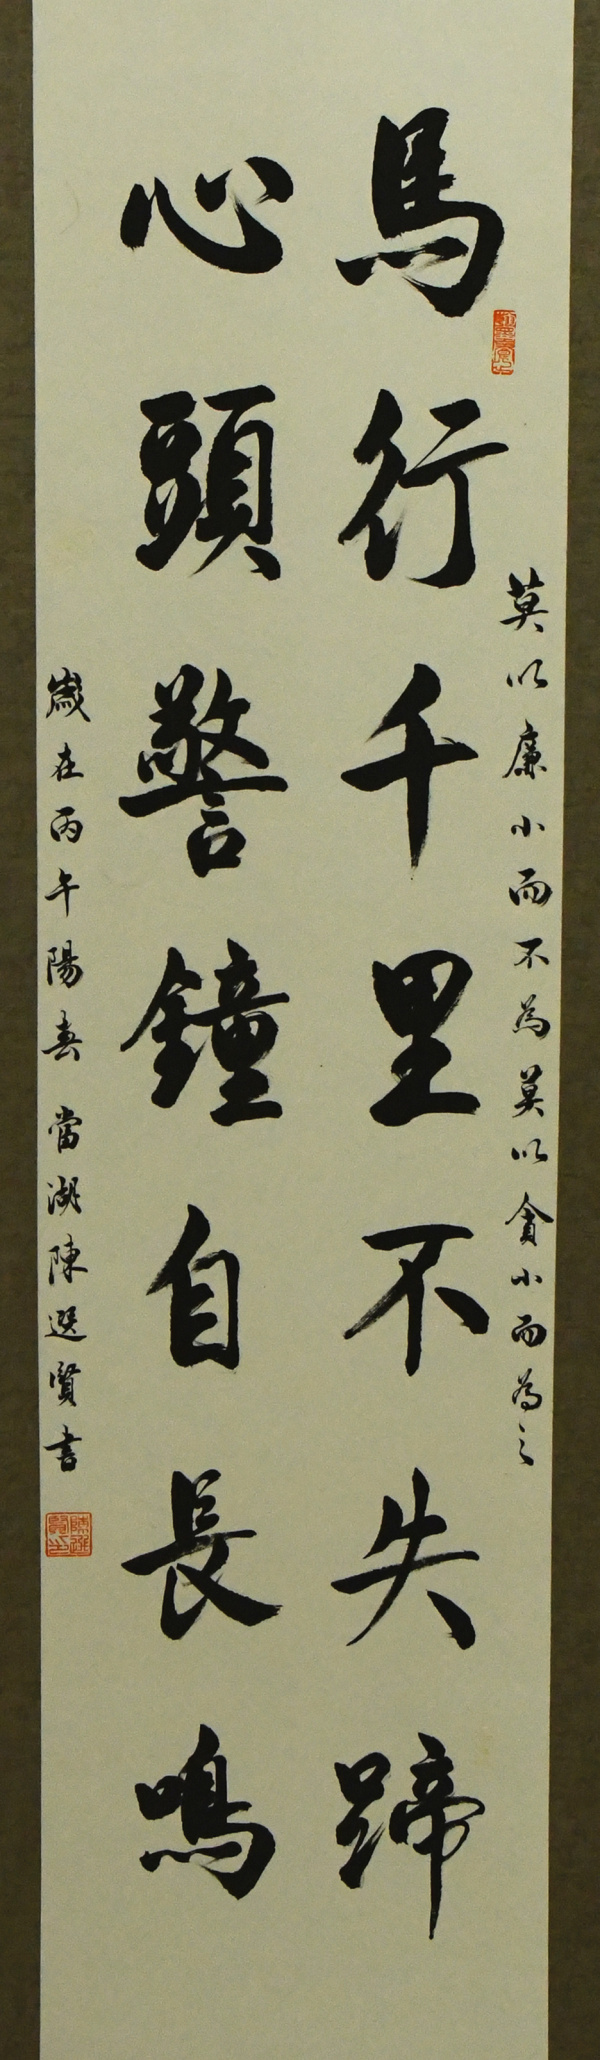 莫以廉小而不為莫以貪小而為之
馬行千里不失蹄
心頭警鐘自長鳴
歲在丙午陽春 當湖陳選賢書
陳選賢印